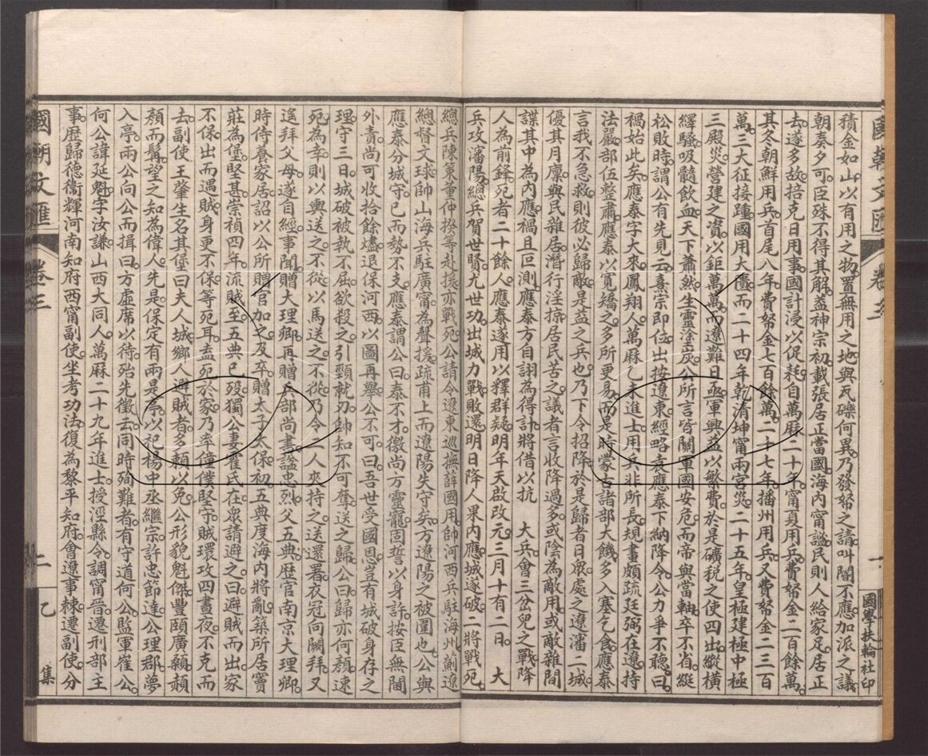 國朝文匯 卷三 一 國學扶輪社印
積金如山以有用之物置無用之地與瓦礫何異乃發帑之請叫閽不應加派之議
朝奏夕可臣殊不得其解蓋神宗初載張居正當國海內富謐民則人給家足居正
去遂多故掊克日用事國計浸以促耗自萬曆二十年甯夏用兵費帑金二百餘萬
其冬朝鮮用兵首尾八年費帑金七百餘萬二十七年播州用兵又費帑金二三百
萬三大征接踵國用大匱而二十四年乾清坤甯兩宮災二十五年皇極建極中極
三殿災營建之資以鉅萬萬而遼難日亟軍興益以繁費於是礦稅之使四出縱橫
繹騷吸髓飲血天下蕭然生靈塗炭公所言皆關軍國安危而帝與當軸卒不省縱
松敗時謂公有先見云熹宗即位出按遼東經略袁應泰下納降令公力爭不聽曰
禍始此矣應泰字大來鳳翔人萬曆乙未進士用兵非所長規畫頗疏廷弼在邊持
法嚴部伍整肅應泰以寬矯之多所更易而是時蒙古諸部大饑多人塞乞食應泰
言我不急救則彼必歸敵是益之兵也乃下令招降於是歸者日眾處之遼瀋二城
優其月廩與民雜居潛行淫掠居民苦之議者言收降過多或陰為敵用或敵雜間
諜其中為內應禍且叵測應泰方自詡為得計將借以抗 大兵會三岔兒之戰降
人為前鋒死者二十餘人應泰遂用以釋群疑明年天啟改元三月十有二日 大
兵攻瀋陽總兵賀世賢尤世功出城力戰敗還明日降人果內應城遂破二將戰死
總兵陳策董仲揆等赴援亦戰死公請令遼東巡撫薛國用帥河西兵駐海州薊遼
總督文球帥山海兵駐廣甯為聲援疏甫上而遼陽失守矣方遼陽之被圍也公與
應泰分城守已而勢不支應泰謂公曰泰不才徼尚方靈寵固誓以身許按臣無閫
外責尚可收拾餘燼退保河西以圖再舉公不可曰吾世受國恩豈有城破身存之
理守三日城破被執不屈欲殺之引頸就刃帥知不可奪送之歸公曰歸亦何顏速
死為幸則以輿送之不從以馬送之不從乃令人夾持之送還署衣冠向闕拜又
遙拜父母遂自經事聞贈大理卿再贈兵部尚書謚忠烈父五典歷官南京大理卿
時侍養家居詔以公所贈官加之及卒贈太子太保初五典度海內將亂築所居竇
莊為堡堅甚崇禎四年流賊至五典已歿獨公妻霍氏在眾請避之曰避賊而出家
不保出而遇賊身更不保等死耳盍死於家乃率僮僕堅守賊環攻四晝夜不克而
去副使王肇生名其堡曰夫人城鄉人避賊者多賴以免公形貌魁傑豐頤廣顙頳
顏而髯望之知為偉人先是保定有兩是亭以祀楊中丞繼宗許忠節達公理郡夢
入亭兩公向公而揖曰方虛席以待殆先徵云同時殉難者有守道何公監軍崔公
何公諱廷魁字汝謙山西大同人萬曆二十九年進士授涇縣令調甯晉遷刑部主
事歷歸德衛輝河南知府西甯副使坐考功法復為黎平知府會遼事棘遷副使分
國朝文匯 卷三 二 乙集